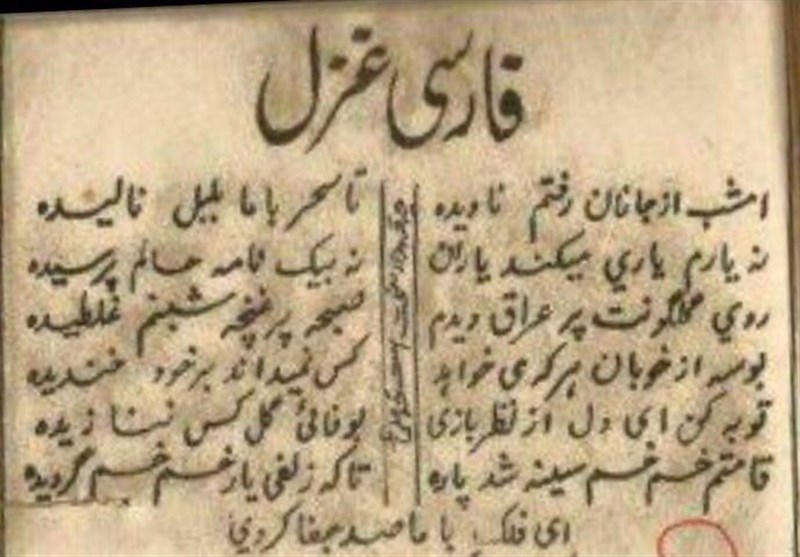 فارسی غزل
امشب از جانان رفتم نادیده تا سحر با ما بلبل نالیده
نه یارم یاري میکند یاران نه بیک نامه حالم پرسیده
روي گلگونت پر عراق دیدم صبحه پر غنچه شبنم غلطیده
بوسه از خوبان هرکه می خواهد کس نمیداند بر خود خندیده
توبه کن ای دل از نظر بازی بوفائ گل کس ننازیده
قامتم خم خم سینه شد پاره تا که زلفی یار خم خم گردیده
ای فلک با ما صد جفا کردي